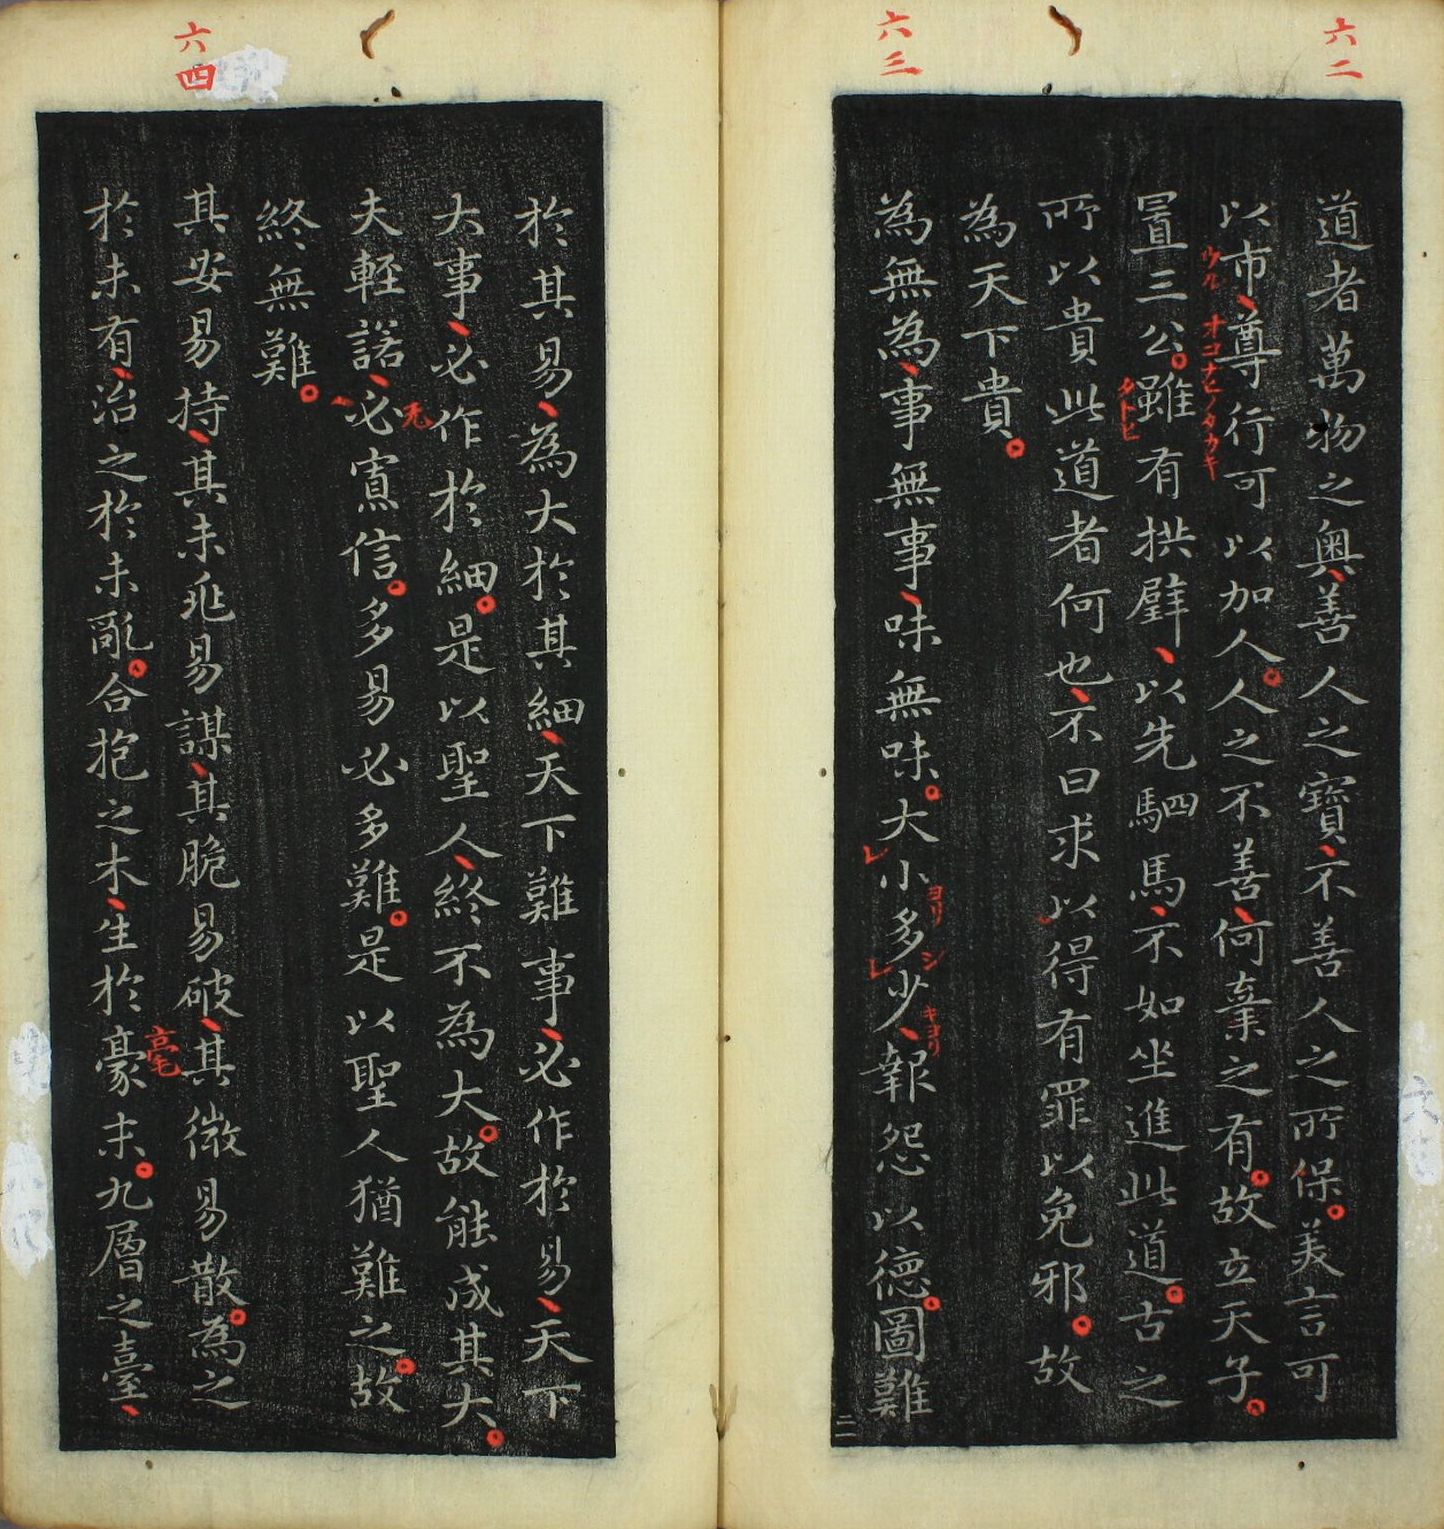 六二
道者萬物之奧、善人之寶、不善人之所保。美言可
以市、尊行可以加人。人之不善、何棄之有。故立天子。
ウル
オコナヒノタカキ
置三公。雖有拱璧、以先駟馬、不如坐進此道。古之
タトヒ
所以貴此道者何也、不曰求以得有罪以免邪。故
為天下貴。
六三
為無為、事無事、味無味。大小多少、報怨以德。圖難
ヨリ
シ
キヨリ
二
於其易、為大於其細、天下難事、必作於易、天下
大事、必作於細。是以聖人、終不為大。故能成其大。
夫輕諾、必寡信。多易必多難。是以聖人猶難之。故
終無難。
六四
其安易持、其未兆易謀、其脆易破、其微易散。為之
毫
於未有、治之於未亂。合抱之木、生於豪末。九層之臺、